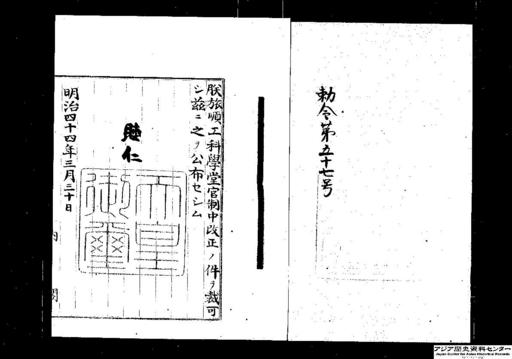 勅令第五十七号
朕旅順工科學堂官制中改正ノ件ヲ裁可
シ茲ニ之ヲ公布セシム
睦仁
天皇
御璽
明治四十四年三月三十日
内閣
アジア歴史資料センター
Japan Center for Asian Historical Records